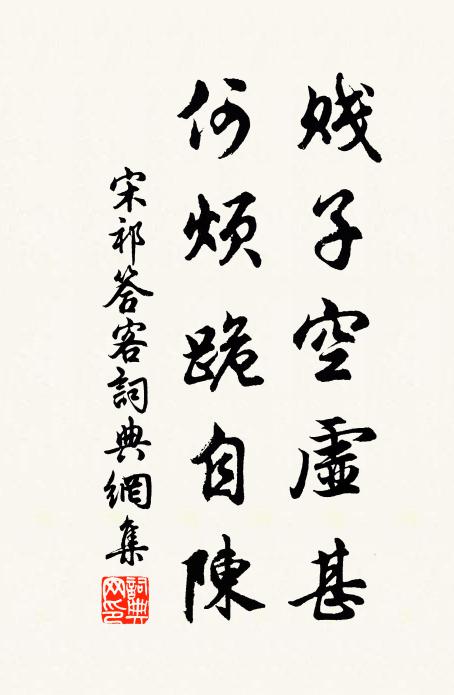 賤子空虛甚
何煩跪自陳
宋祁答客詞典網集
詞典
网印